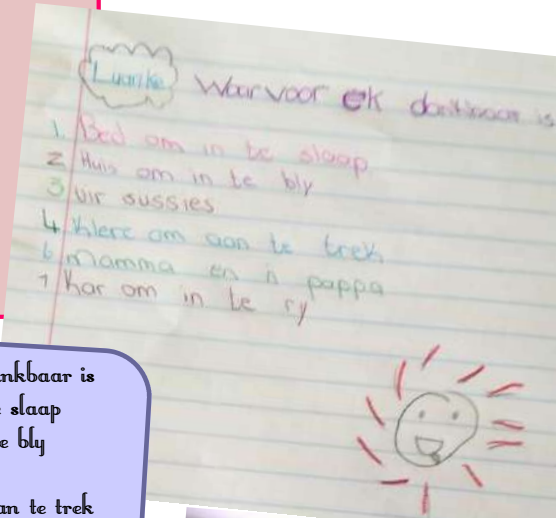 Luanke
Waarvoor ek dankbaar is
1. Bed om in te slaap
2 Huis om in te bly
3 vir sussies
4 klere om aan te trek
6 mamma en n pappa
7 kar om in te ry
nkbaar is
slaap
e bly
an te trek